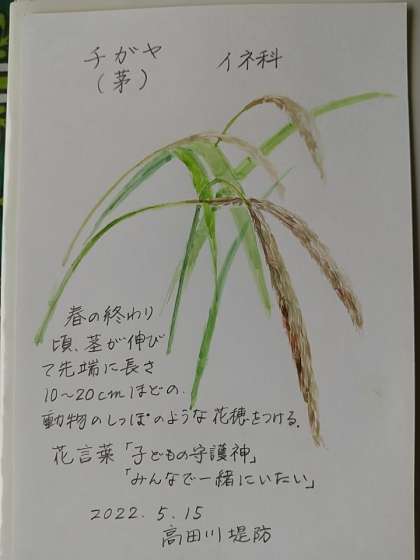 チガヤ イネ科
(茅)
春の終わり
頃、茎が伸び
て先端に長さ
10〜20cmほどの
動物のしっぽのような花穂をつける。
花言葉「子どもの守護神」
「みんなで一緒にいたい」
2022.5.15
高田川堤防